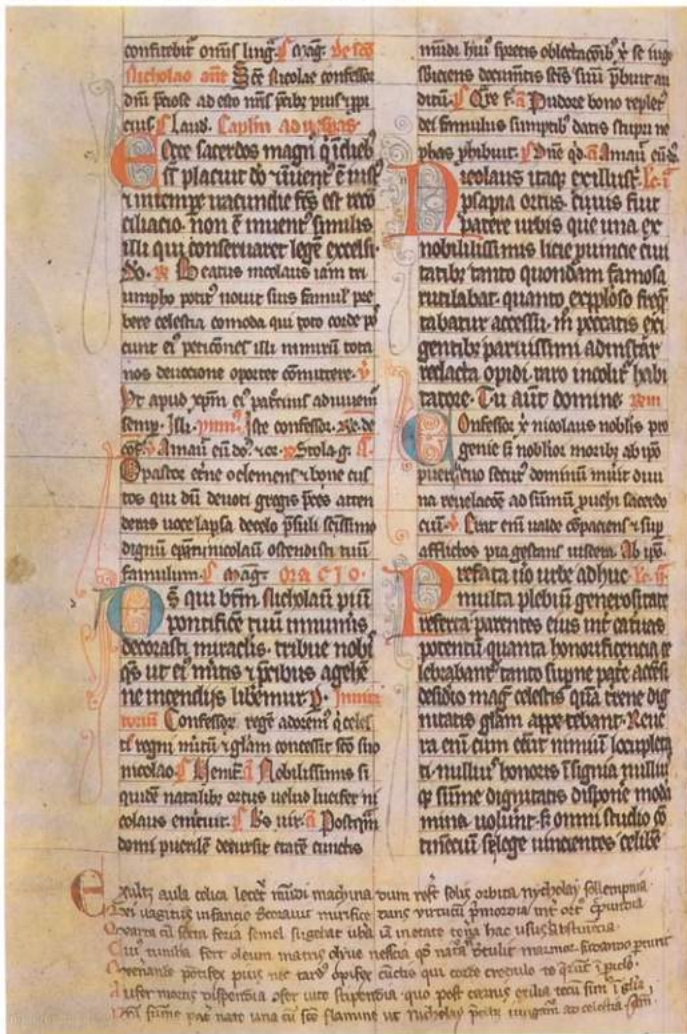 confitebit omnis ling̃ ꝑ mag̃ de sc̃o
Nicholao añt Sc̃e Nicolae confessor
dñi p̃ciose ad esto nr̃is p̃cibꝫ pius ⁊ ꝓpi
cius Laud. Cap̃lm ad uesp̃as
Ecce sacerdos magnꝰ q̇ ĩ diebꝰ
suis placuit do ⁊ ĩuentꝰ ẽ iustꝰ
⁊ in tempe iracundie fcũs est recõ
ciliacio. non ẽ inuentꝰ similis
illi qui conseruaret legẽ excelsi.
Do. R̃ Beatus nicolaus iam tri
umpho potitꝰ nouit suis famul̃ pre
bere celestia comoda qui toto corde pos
cunt eiꝰ peticõnes illi nimirũ tota
nos deuocione oportet cõmittere. v̾
Vt apud xp̃m eiꝰ patrcinis adiuuem̃
semp̃. Illi. ymnꝰ Iste confessor. R̃e. de
cõf. v̾ Amauit eũ do. ⁊ or. Stola g.
O pastor et̃ne o clemens ⁊ bone cus
tos qui dũ deuoti gregis p̃ces atten
deras uoce lapsa de celo p̃suli sc̃issimo
dignũ ep̃atu nicolaũ ostendisti tuũ
famulum. mag̃ ORACIO.
Ds̃ qui btm̃ Nicholaũ piũ
pontificẽ tuũ innum̃is
decorasti miraclis. tribue nobꝫ
q̃s ut eiꝰ m̃itis ⁊ p̃cibus a gehẽ
ne incendiis libem̃ur. P̃. Inuita
toriũ Confessorꝫ regẽ adorem̃ q̇ celes
tis regni m̃itũ ⁊ gl̃am concessit sc̃o suo
nicolao. Ṽenite. ã Nobilissimis si
quidẽ natalibꝫ ortus uelud lucifer ni
colaus emicuit. Bs̃ uir. ã Postq̃m
domi puerilẽ decursit etatẽ cunctis
mũdi huiꝰ spretis oblectac̃õibꝫ x̃ se iugo
sbiciens documẽtis sc̃is suũ p̃buit au
ditũ. Qr̃e f̃. ã Pudore bono repletꝰ
dei famulus sumptibꝫ datis stupri ne
phas ꝓhibuit. Dñe q̇d. ã Amauit eũ dꝰ.
Nicolaus itaqꝫ ex illustri Lc̃ ĩ
ꝓsapia ortus. ciuis fuit
patere urbis que una ex
nobilissimis licie ꝓuincie ciui
tatibꝫ tanto quondam famosa
rutilabat. quanto exploso freq̃n
tabatur accessu. nunc peccatis exi
gentibꝫ paruissimi ad instar
redacta opidi raro incolitur habi
tatore. Tu aut̃ domine
Confessor x̃ nicolaus nobilis pro
genie sꝫ nobilior moribꝫ ab ip̃o
puericie euo secutꝰ dominũ m̃uit diui
na reuelac̃õe ad sũmũ ꝓuehi sacerdo
ciũ. v̾ Erat eñi ualde cõpaciens ⁊ sup
afflictos pia gestans uiscera. Ab ip̃o.
Prefata u̇o urbe adhuc Lc̃ ĩĩ
multa plebiũ generositate
referta parentes eius int̃ cateruas
potentũ quanta honorificencia ce
lebrabant̃ tanto supne patrie accẽsi
desid̃io mag̃ celestis quã terrene dig
nitatis gl̃am appetebant. Reue
ra eñi cum essent nimiũ locupleta
ti. nulliꝰ honoris ĩsignia nulliꝰ
qꝫ sũme dignitatis disponẽ mode
mina uolunt. sꝫ omni studio cõ
tinenciũ se lege uincientes celibẽ
Exultet aula celica letet̃ mũdi machina dum refert solis orbita nycholay sollempnia
Rei uagitus infancio decorauit mirifice dans virtutũ p̃mordia int̃ ortꝰ cp̃undia
Quarta cũ sexta feria semel sugebat ubera in etate ten̾a hac usus abstinencia
Cuiꝰ tumba fert oleum matris oliue nescia q̇d natura ꝓtulit marmor sudando parturit
Venande põtifex pius nec tardꝰ opifex cũctis qui corde credulo te q̃runt ĩ pic̃lo
Aufer mortis dispendia ofer uite stipendia quo post carnis exilia tecũ simꝰ ĩ gl̃ia
Presta sũme pat̃ nate una cũ sc̃o flamine ut nicholay p̃cibꝫ iungam̃ ad celestia Am̃